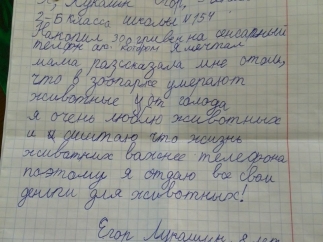 Я, Лукашин Егор,
2-Б класса школы №154
Накопил 300 гривен на сенсатный
телефон о котором я мечтал
мама рассказала мне о том,
что в зоопарке умерают
животные от голода
я очень люблю животных
и я считаю что жизнь
животних важнее телефона
поэтому я отдаю все свои
деньги для животных!
Егор Лукашин 8 лет